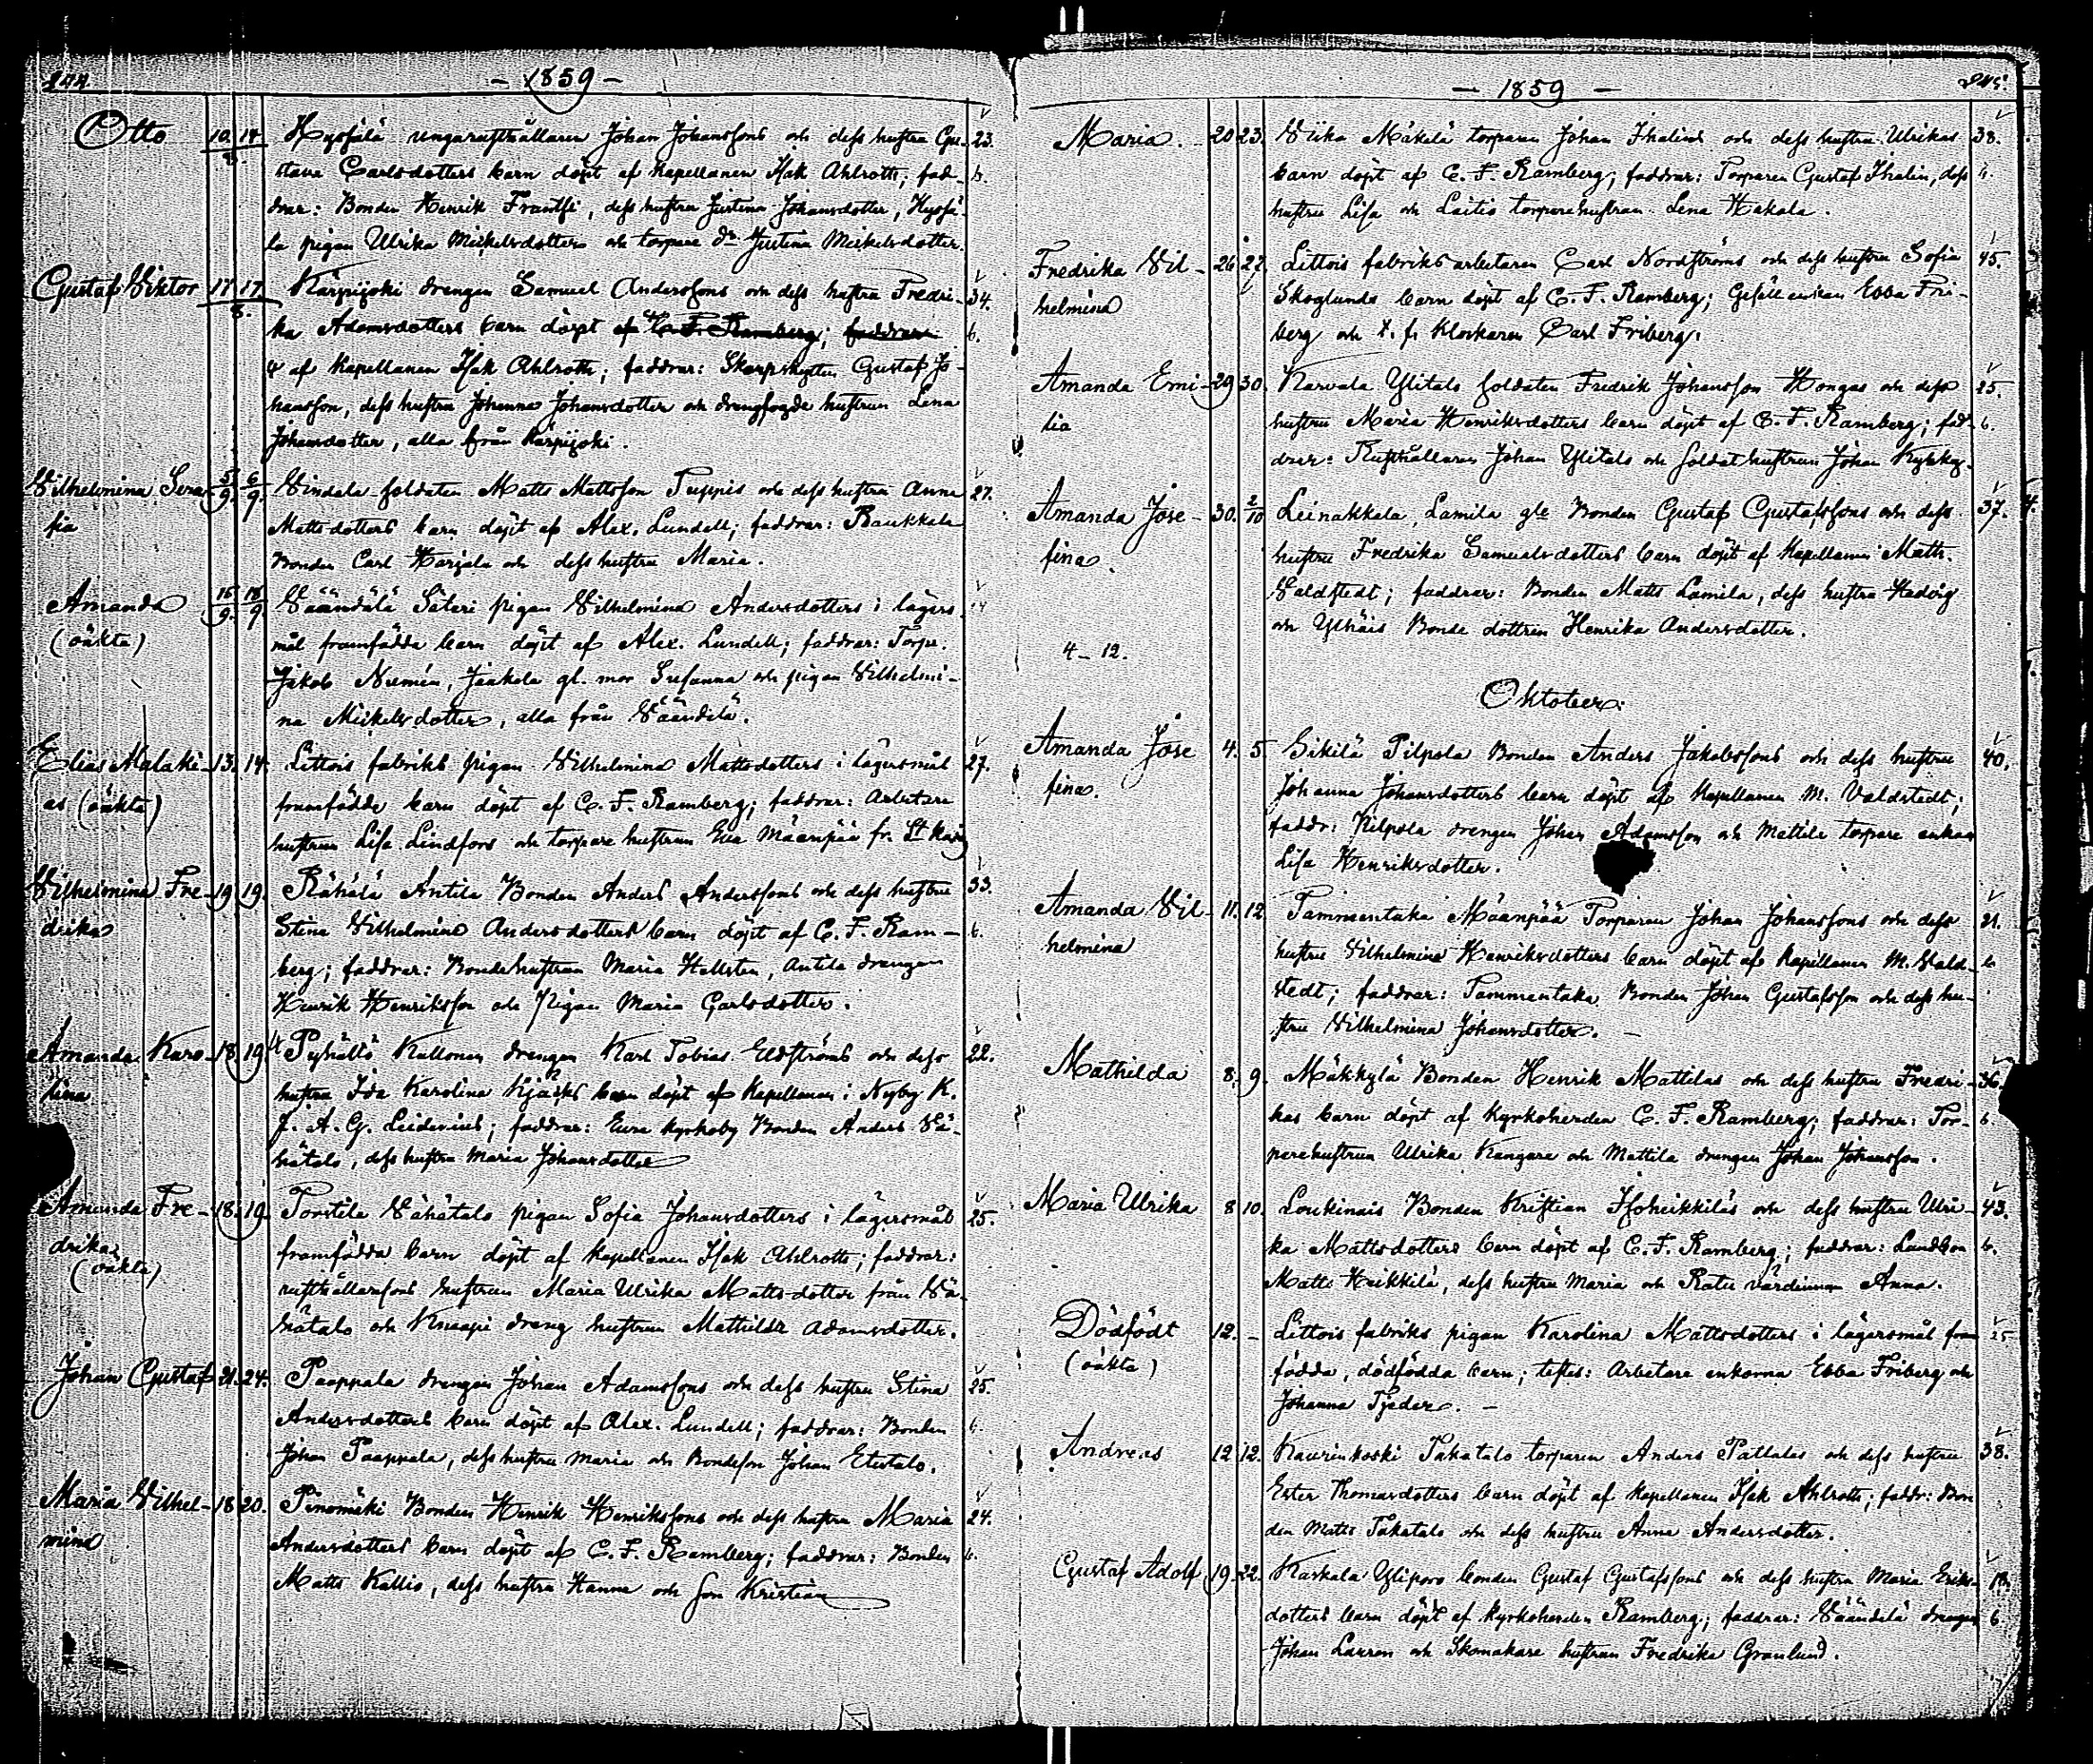 244.
- 1859 -
Otto 10 14 8. Hyssälä ungarusthållaren Johan Johanssons och dess hustru Gu- 23.
stava Carlsdotters barn döpt af kapellanen Isak Ahlroth; fad- b.
drar: Bonden Henrik Frantsi, dess hustru Justina Johansdotter, Hyssä-
lä pigan Ulrika Mickelsdotter och torpare dr Justina Mickelsdotter.
Gustaf Viktor 17 17 8. Kärpijoki drengen Samuel Anderssons och dess hustru Fredri- 34.
ka Adamsdotters barn döpt af C. F. Ramberg; faddrar b.
af Kapellanen Isak Ahlroth; faddrar: Skarpskytten Gustaf Jo-
hansson, dess hustru Johanna Johansdotter och drengfogde hustrun Lena
Johansdotter, alla från Kärpijoki.
Vilhelmina Sera- 5/9. 6/9. Vindala soldaten Matts Mattsson Tuppis och dess hustru Anna 27.
fia Mattsdotters barn döpt af Alex. Lundell; faddrar: Raukkala
Bonden Carl Harjala och dess hustru Maria.
Amanda 15/9. 18/9 Väändälä Säteri pigan Vilhelmina Andersdotters i lägers
(oäkta) mål framfödda barn döpt af Alex. Lundell; faddrar: Torp.
Jakob Numén, Jaakola gl. mor Susanna och pigan Vilhelmi-
na Mickelsdotter, alla från Väändelä.
Elias Malaki- 13. 14. Littois fabriks pigan Vilhelmina Mattsdotters i lägersmål 27.
as (oäkta) framfödda barn döpt af C. F. Ramberg; faddrar: Arbetare
hustrun Lisa Lindfors och torpare hustrun Eva Mäenpää fr. St. Karins
Vilhelmina Fre- 19 19. Rähälä Antila Bonden Anders Anderssons och dess hustru 33.
drika Stina Vilhelmina Andersdotters barn döpt af C. F. Ram- b.
berg; faddrar: Bondehustrun Maria Hellsten, Antila drengen
Henrik Henriksson och Pigan Maria Carlsdotter.
Amanda Karo- 18 19 Pyhältö Kullonen drengen Karl Tobias Eldströms och dess 22.
lina hustru Ida Karolina barn döpt af Kapellanen i Nyby K.
J. A. G. Leidenius; faddrar: Eura kyrkoby Bonden Anders Vä-
hätalo, dess hustru Maria Johansdotter
Amanda Fre- 18. 19. Torstila Vähätalo pigan Sofia Johansdotters i lägersmål 25.
drika framfödda barn döpt af Kapellanen Isak Ahlroth; faddrar:
(oäkta) rusthållarsons hustrun Maria Ulrika Mattsdotter från Vä-
hätalo och Knaapi dreng hustrun Mathilda Adamsdotter.
Johan Gustaf 21. 24. Paappala drengen Johan Adamssons och dess hustru Stina 25.
Andersdotters barn döpt af Alex. Lundell; faddrar: Bonden b.
Johan Paappala, dess hustru Maria och Bondeson Johan Etutalo.
Maria Vilhel- 18 20. Pinomäki Bonden Henrik Henrikssons och dess hustru Maria 24.
mina Andersdotters barn döpt af C. F. Ramberg; faddrar: Bonden b.
Matts Kallis, dess hustru Hanna och Son Kristian
245.
- 1859 -
Maria. 20 23. Viika Mäkelä torparen Johan Thalins och dess hustru Ulrikas 38.
barn döpt af C. F. Ramberg; faddrar: Torparen Gustaf Thalin, dess b.
hustru Lisa och Laitis torparehustrun Lena Hakala.
Fredrika Vil- 26 27. Littois fabriksarbetaren Carl Nordströms och dess hustru Sofia 45.
helmina Skoglunds barn döpt af C. F. Ramberg; Gesällenkan Ebba Fri-
berg och t. f. Klockaren Carl Friberg.
Amanda Emi- 29 30. Karvala Ylitalo soldaten Fredrik Johansson Hongas och dess 25.
lia hustru Maria Henriksdotters barn döpt af C. F. Ramberg; fad- b.
drar: Rusthållaren Johan Ylitalo och soldathustrun Johan
Amanda Jose- 30. 2/10 Leinakkala, Lamila gle Bonden Gustaf Gustafssons och dess 37. 4.
fina. hustru Fredrika Samuelsdotters barn döpt af Kapellanen Math.
Valdstedt; faddrar: Bonden Matts Lamila, dess hustru Hedvig
och Ylhäis Bonde dottren Henrika Andersdotter.
4-12.
Oktober.
Amanda Jose 4. 5 Sikilä Pilpola Bonden Anders Jakobssons och dess hustru 40.
fina. Johanna Johansdotters barn döpt af Kapellanen M. Valdstedt;
faddr: Pilpola drengen Johan Adamsson och Mettila torpare enkan
Lisa Henriksdotter.
Amanda Vil- 11. 12. Tammentaka Mäenpää Torparen Johan Johanssons och dess 21.
helmina hustru Vilhelmina Henriksdotters barn döpt af Kapellanen M. Vald- b
stedt; faddrar: Tammentaka Bonden Johan Gustafsson och dess hu-
stru Vilhelmina Johansdotter. -
Mathilda 8. 9. Mäkkylä Bonden Henrik Mattilas och dess hustru Fredri- 36.
kas barn döpt af Kyrkoherden C. F. Ramberg; faddrar: Tor- b.
parehustrun Ulrika Kangare och Mattila drengen Johan Johansson.
Maria Ulrika 8 10. Loukinais Bonden Kristian Isoheikkiläs och dess hustru Ulri- 43.
ka Mattsdotters barn döpt af C. F. Ramberg; faddrar: Landbon b.
Matts Heikkilä, dess hustru Maria och Ratu värdinnan Anna.
Dödfödt 12. - Littois fabriks pigan Karolina Mattsdotters i lägersmål fram 25
(oäkta) födda, dödfödda barn; testes: Arbetare enkorna Ebba Friberg och
Johanna Tjeder. -
Andreas 12 12. Kaurinkoski Takatalo torparen Anders Pattalas och dess hustru 38.
Ester Thomasdotters barn döpt af Kapellanen Isak Ahlroth; faddr: Bon
den Matts Takatalo och dess hustru Anna Andersdotter.
Gustaf Adolf 19. 22. Kaskala Yliporo bonden Gustaf Gustafssons och dess hustru Maria Eriks-
dotters barn döpt af Kyrkoherden Ramberg; faddrar: Väändelä drengen b
Johan Lauren och Skomakare hustrun Fredrika Granlund.